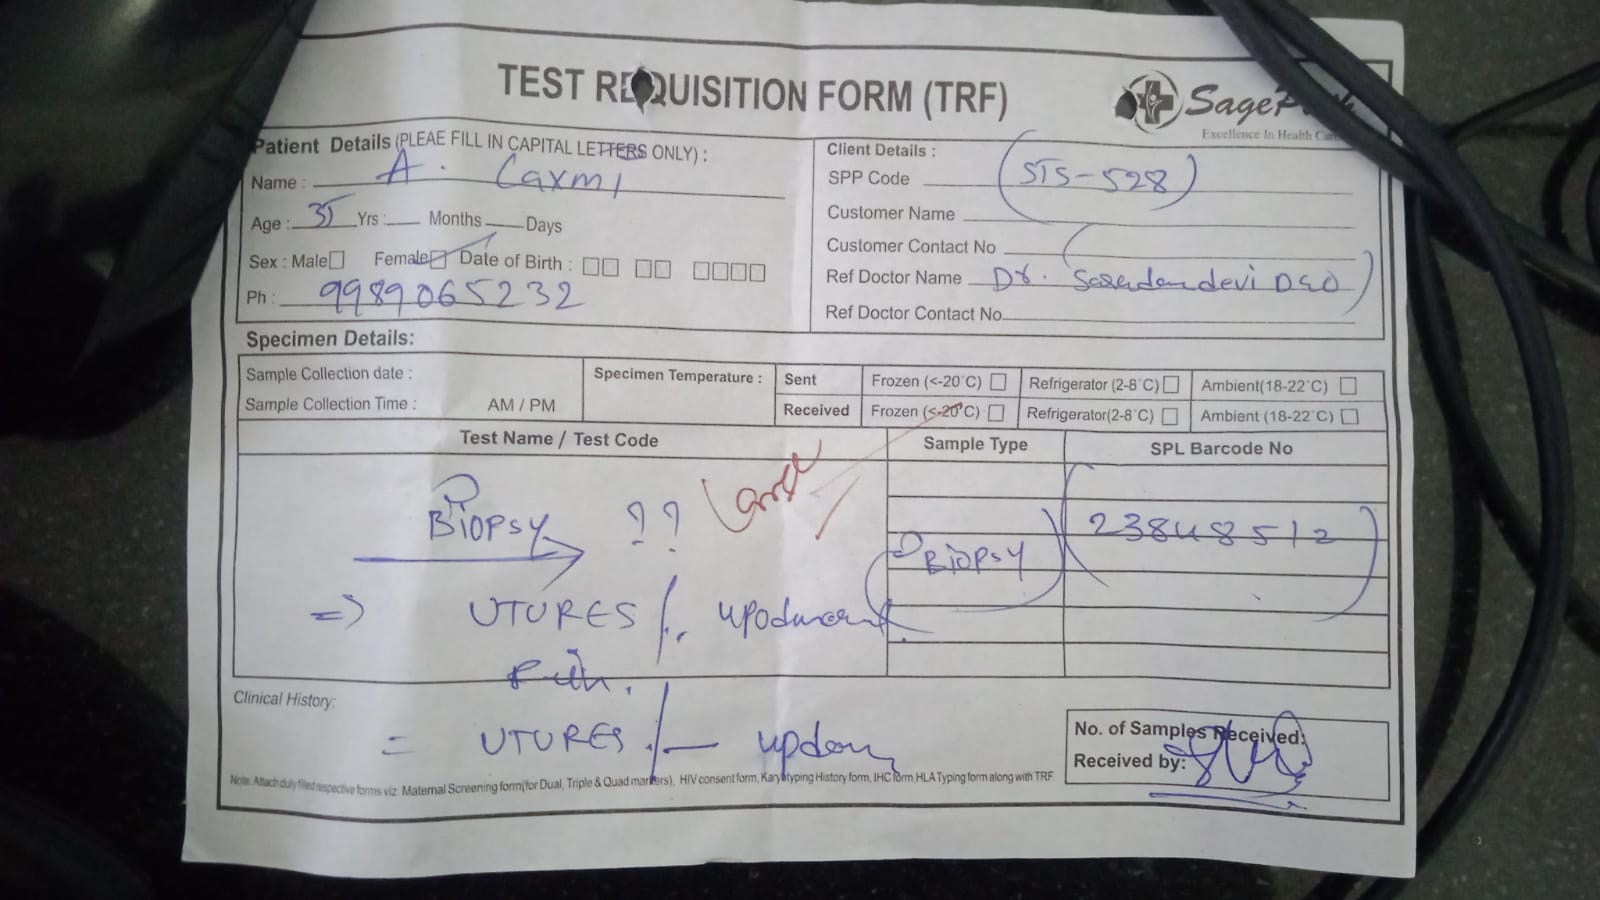 TEST REQUISITION FORM (TRF)
SagePath
Excellence In Health Care
Patient Details (PLEAE FILL IN CAPITAL LETTERS ONLY) :
Name : A. Laxmi
Age : 35 Yrs : Months Days
Sex : Male Female Date of Birth :
Ph : 9989065232
Client Details :
SPP Code (STS-528)
Customer Name
Customer Contact No
Ref Doctor Name Dr. DGO
Ref Doctor Contact No.
Specimen Details:
Sample Collection date :
Sample Collection Time : AM / PM
Specimen Temperature :
Sent Frozen (<-20°C) Refrigerator (2-8°C) Ambient(18-22°C)
Received Frozen (<-20°C) Refrigerator(2-8°C) Ambient (18-22°C)
Test Name / Test Code Sample Type SPL Barcode No
BIOPSY ?? Large
BIOPSY 23848512
=> UTURES
Clinical History:
= UTURES
No. of Samples Received:
Received by:
Note: Attach duly filled respective forms viz. Maternal Screening form(for Dual, Triple & Quad markers), HIV consent form, Karyotyping History form, IHC form,HLA Typing form along with TRF.